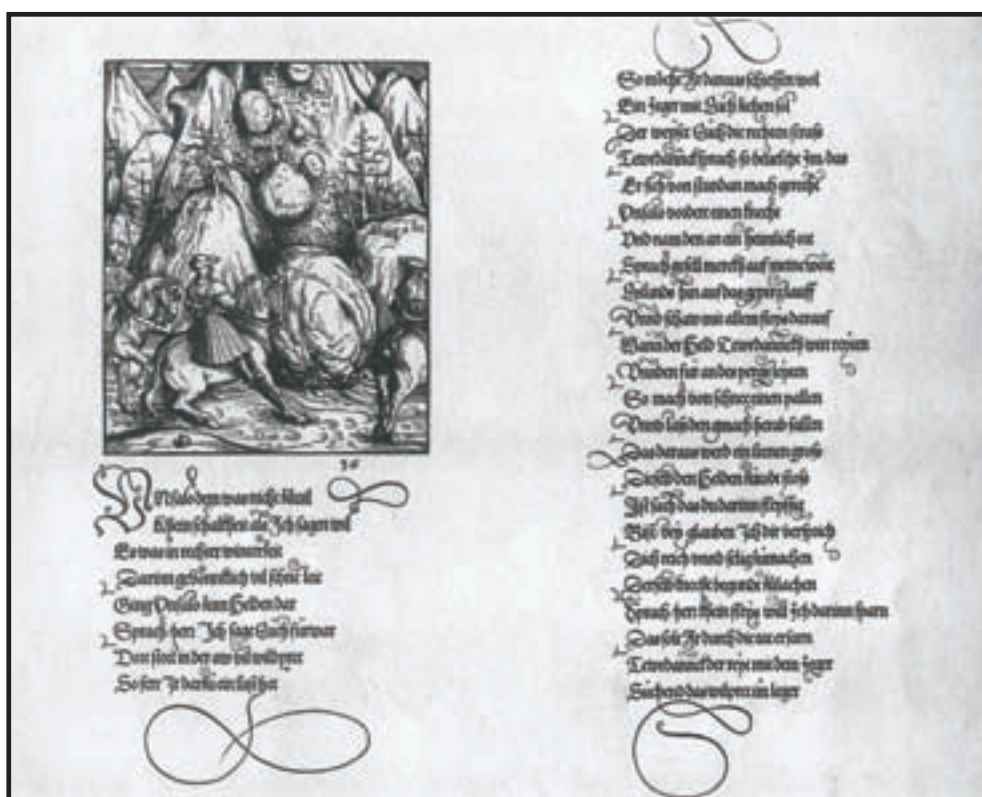 36
Vnfalo dem was nicht
als Jch sagen wil
Es was in rechter winterzeit
Darinn vil schnee leit
Gieng Vnfalo zum Helden dar
Sprach herr Jch sage Euch fürwar
Dort steet in der aw vil wildpret
So ferr Jr darzu ein lust het
So möcht Jr daraus schiessen wol
Ein Jeger mit Euch ziehen sol
Der weyst Euch die rechten strass
Tewrdannck sprach so Jm das
Er sich von stundan mach gerecht
Vnfalo vordert einen knecht
Vnd nam den an ein heimlich ort
Sprach gesell merckh auf meine wort
hin auf das gepirg lauff
Vnnd schaw mit allem fleys darauf
Wann der Held Tewrdannckh wirt
Vnnden für an des pergs
So mach von schnee einen pallen
Vnnd lass den gmach herab fallen
Das daraus werd ein leenen gross
Dieselb den Helden
Ist sach das du darinn fleyssig
Bist bey glauben Jch dir versprich
Dich reich vnnd selig zumachen
Derselb knecht begunde zulachen
Sprach herr kein fleyss will Jch darinn sparn
Das solt Jr durch die
Tewrdannck der reyt mit dem Jeger
Suchend das wilpret im leger